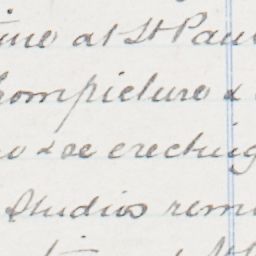 ime at St Pau
Compicture &
o & se erecting
Studios rem